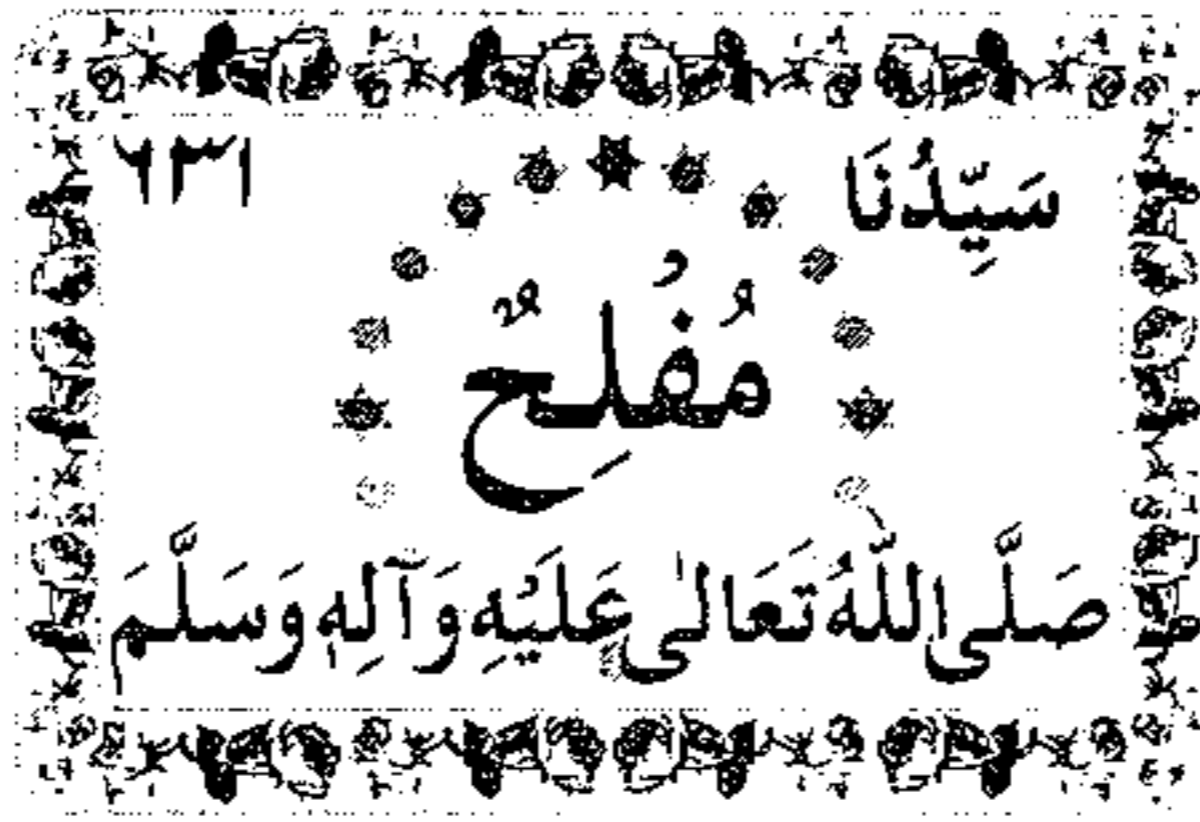 سَيِّدُنَا ٦٣١
مُفْلِحٌ
صَلَّى اللّٰهُ تَعَالىٰ عَلَيْهِ وَآلِهٖ وَسَلَّمَ